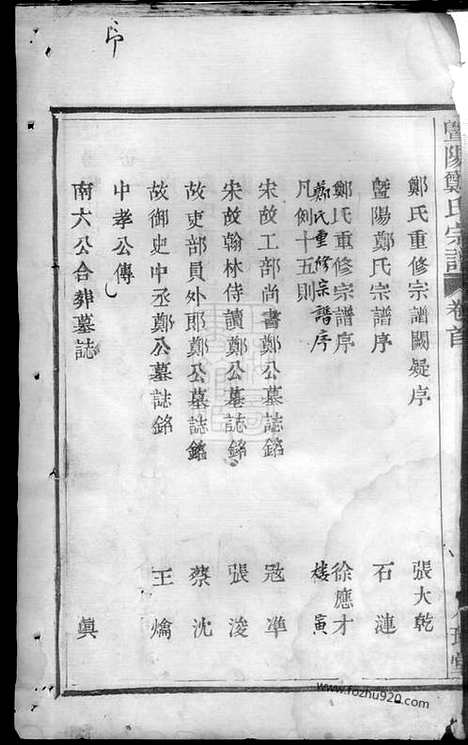 暨陽鄭氏宗譜 卷首
鄭氏重修宗譜闕疑序 張大乾
暨陽鄭氏宗譜序 石漣
鄭氏重修宗譜序 徐應才
鄭氏重修宗譜序 樓寅
凡例十五則
宋故工部尚書鄭公墓誌銘 冦凖
宋故翰林侍讀鄭公墓誌銘 張浚
故吏部員外郎鄭公墓誌銘 蔡沈
故御史中丞鄭公墓誌銘 王爚
中孝公傳
南六公合葬墓誌 真
www.fozhu920.com